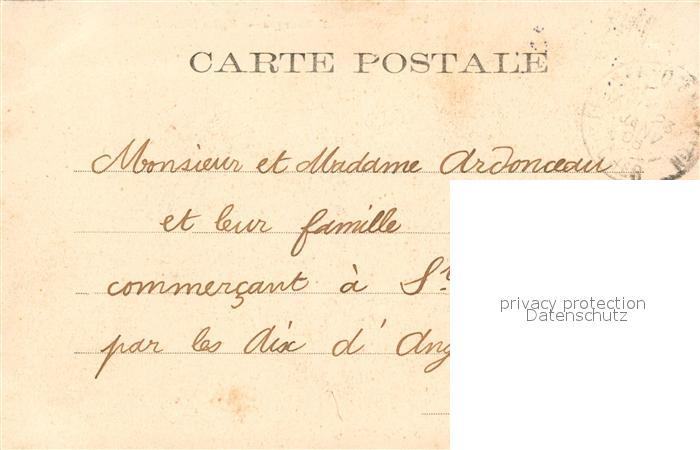 CARTE POSTALE
Monsieur et Madame Ardonceau
et leur famille
commerçant à St
par les Aix d' Ang
privacy protection
Datenschutz